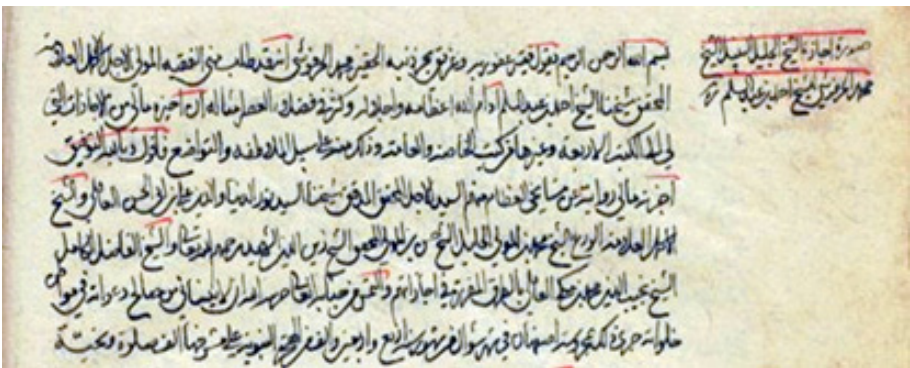 صورة اجازة الشيخ الجليل النبيل الشيخ
محمد الحرفوشي للشيخ احمد بن عبد السلم
بسم الله الرحمن الرحيم يقول فقير عفو ربه وغريق بحر ذنبه الحقير محمد الحرفوشي انه قد طلب مني الفقيه المولى الاجل الاكمل العلامة
المحقق شيخنا الشيخ احمد بن عبد السلم ادام الله اعظامه واجلاله وكثر في فضلاء العصر امثاله ان اخبره مالي من الاجازات التي
لي الى الكتب الاربعة وغيرها من كتب الخاصة والعامة وذلك منه على سبيل الملاطفة والتواضع فاقول وبالله التوفيق
اجزته مالي روايته من مشايخي العظام منهم السيد الاجل المحقق المدقق شيخنا السيد نور الدنيا والدين علي بن ابي الحسن العاملي والشيخ
الاجل العلامة الورع الشيخ محمد بن المولى الجليل الشيخ حسن بن المحقق الشيخ زين الدين الشهيد رحمهم الله تعالى والشيخ الفاضل الكامل
الشيخ نجيب الدين محمد بن مكي العاملي بالطرق المقررة في اجازاتهم والتمس من جنابه العالي حرسه الله ان لا ينساني من صالح دعواته في
خلواته حرر ذلك بمحروسة اصفهان في شهر شوال من شهور سنة اربع واربعين والف من الهجرة النبوية على مشرفها الف صلوة وتحية